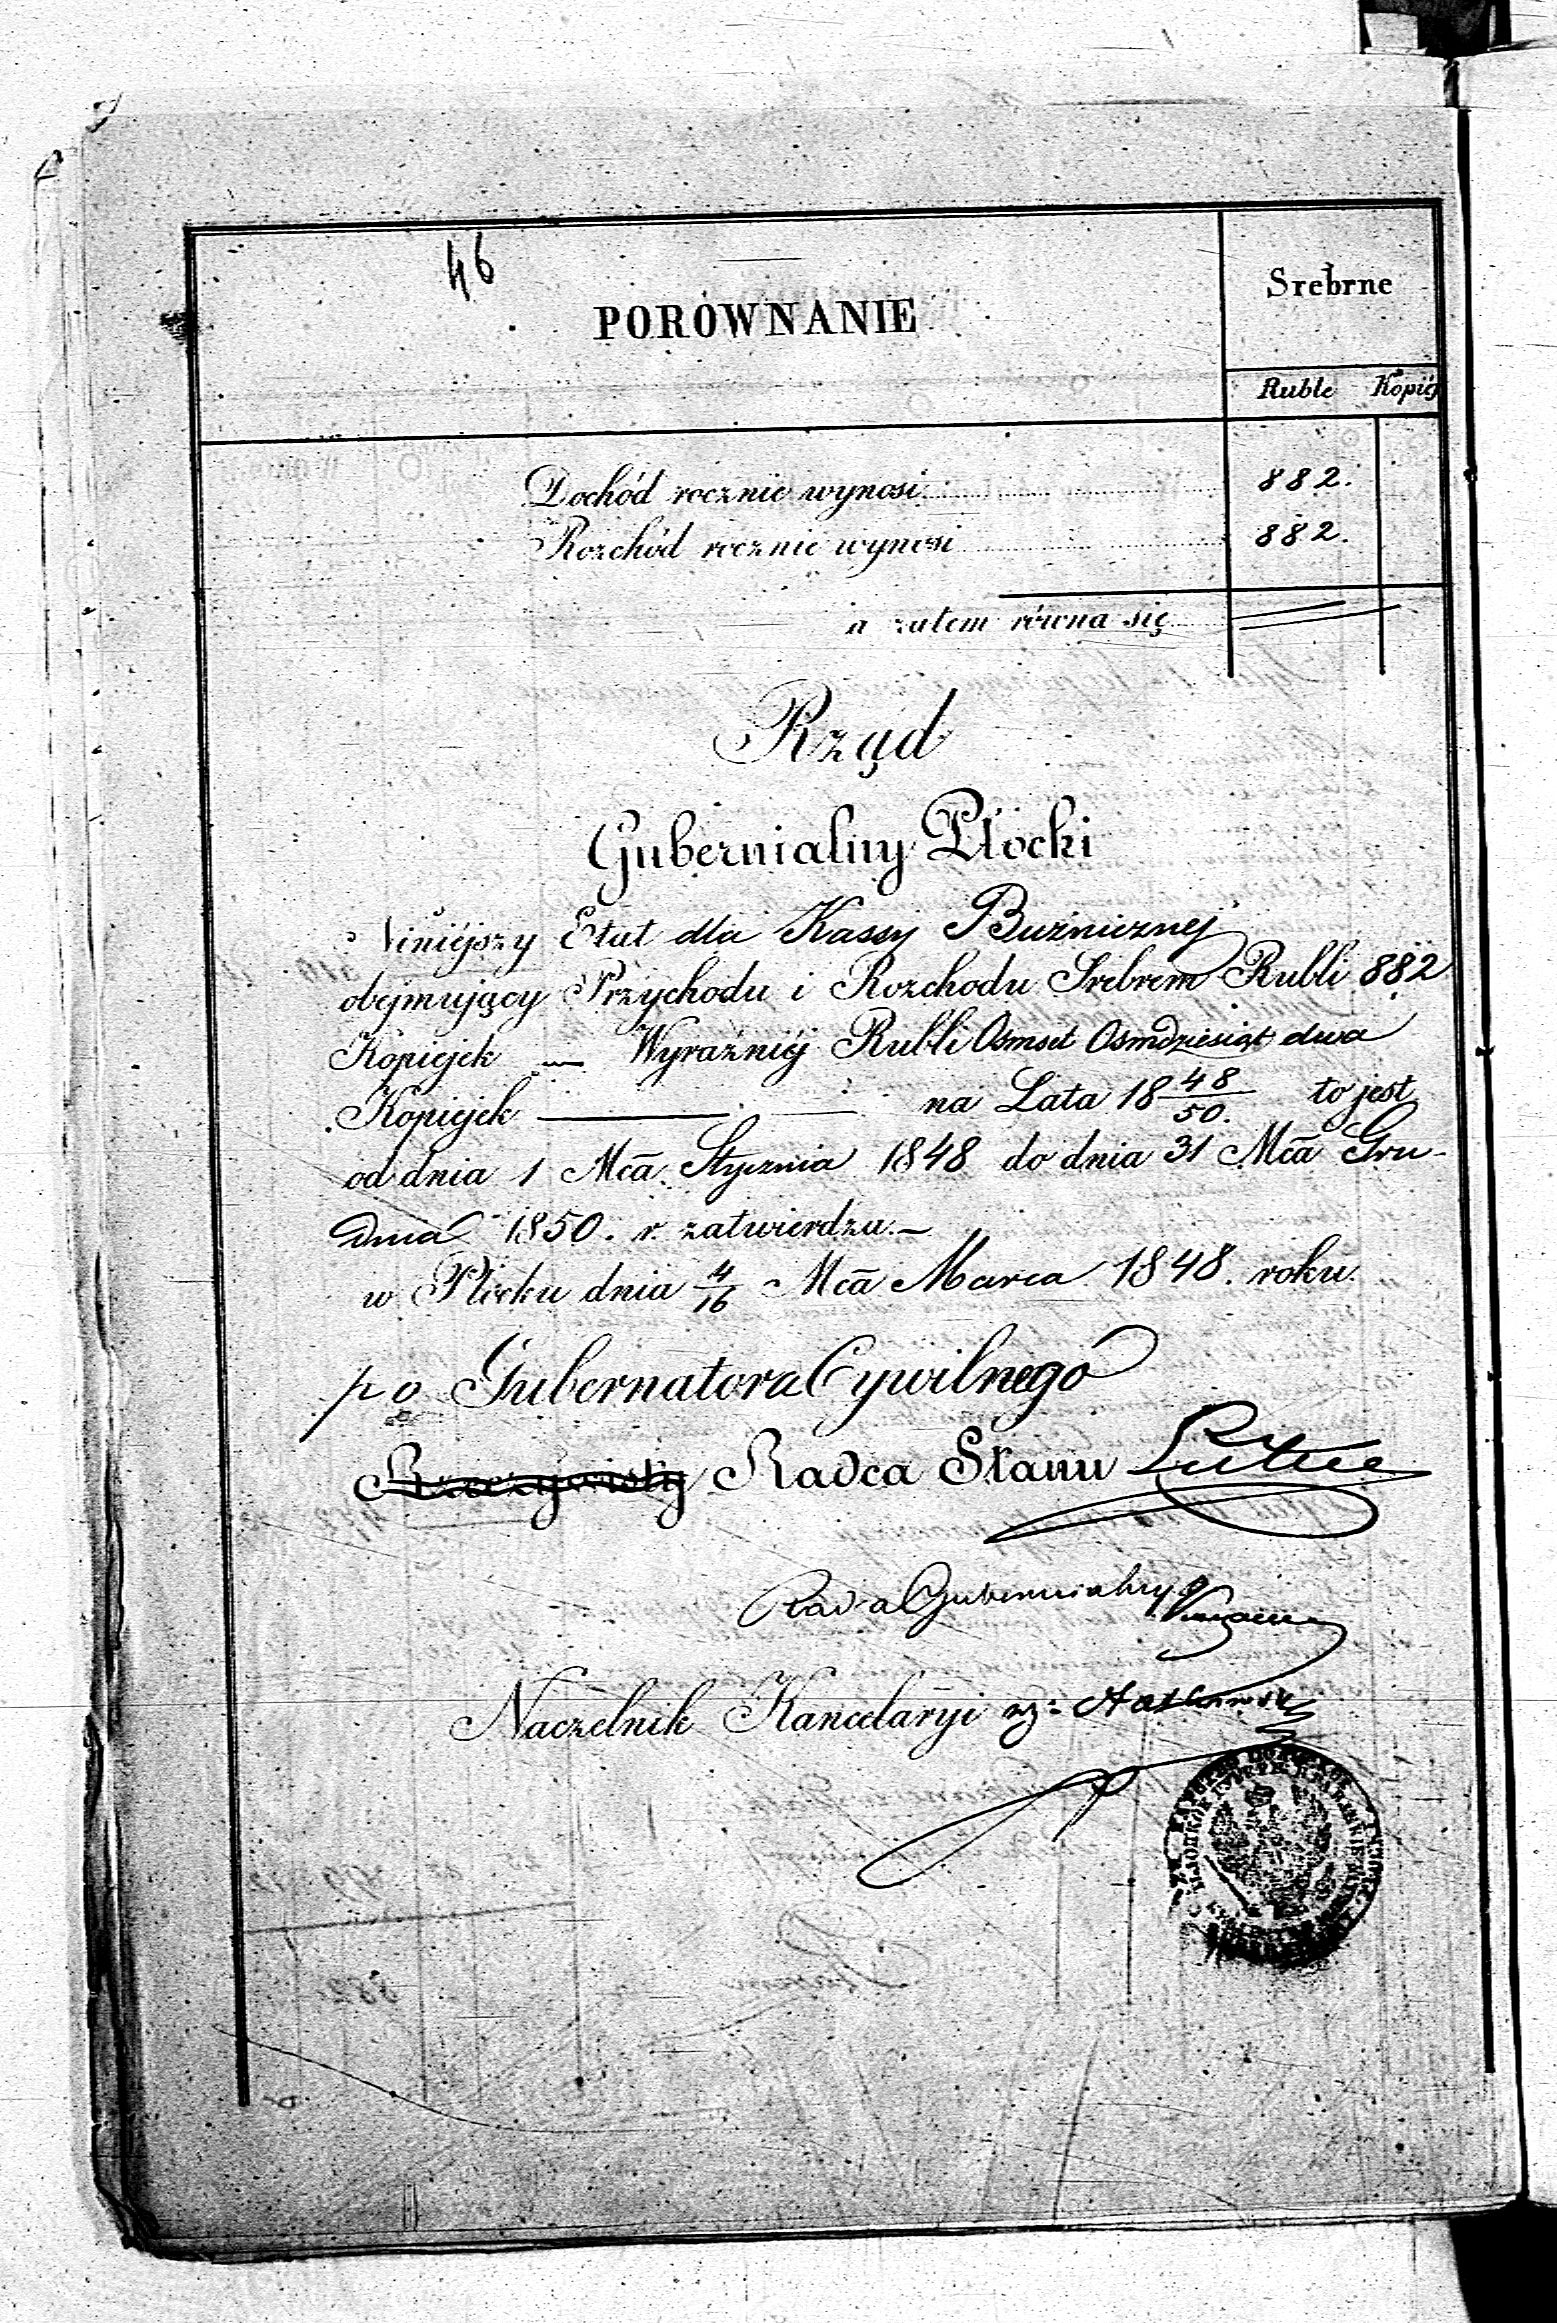 46
PORÓWNANIE
Srebrne
Ruble Kopiéj
Dochód rocznie wynosi 882.
Rozchód rocznie wynosi 882.
a zatem równa się
Rząd
Gubernialny Płocki
Niniéjszy Etat dla Kassy Buźnicznej
obejmujący Przychodu i Rozchodu Srebrem Rubli 882
Kopiejek — Wyraźniéj Rubli Osmset Osmdziesiąt dwa
Kopiejek — na Lata 18 48/50. to jest
od dnia 1 Mca Stycznia 1848 do dnia 31 Mca Gru-
dnia 1850. r. zatwierdza.—
w Płocku dnia 4/16 Mca Marca 1848. roku.
p o Gubernatora Cywilnego
Rzeczywisty Radca Stanu
Radca Gubernialny
Naczelnik Kancelaryi